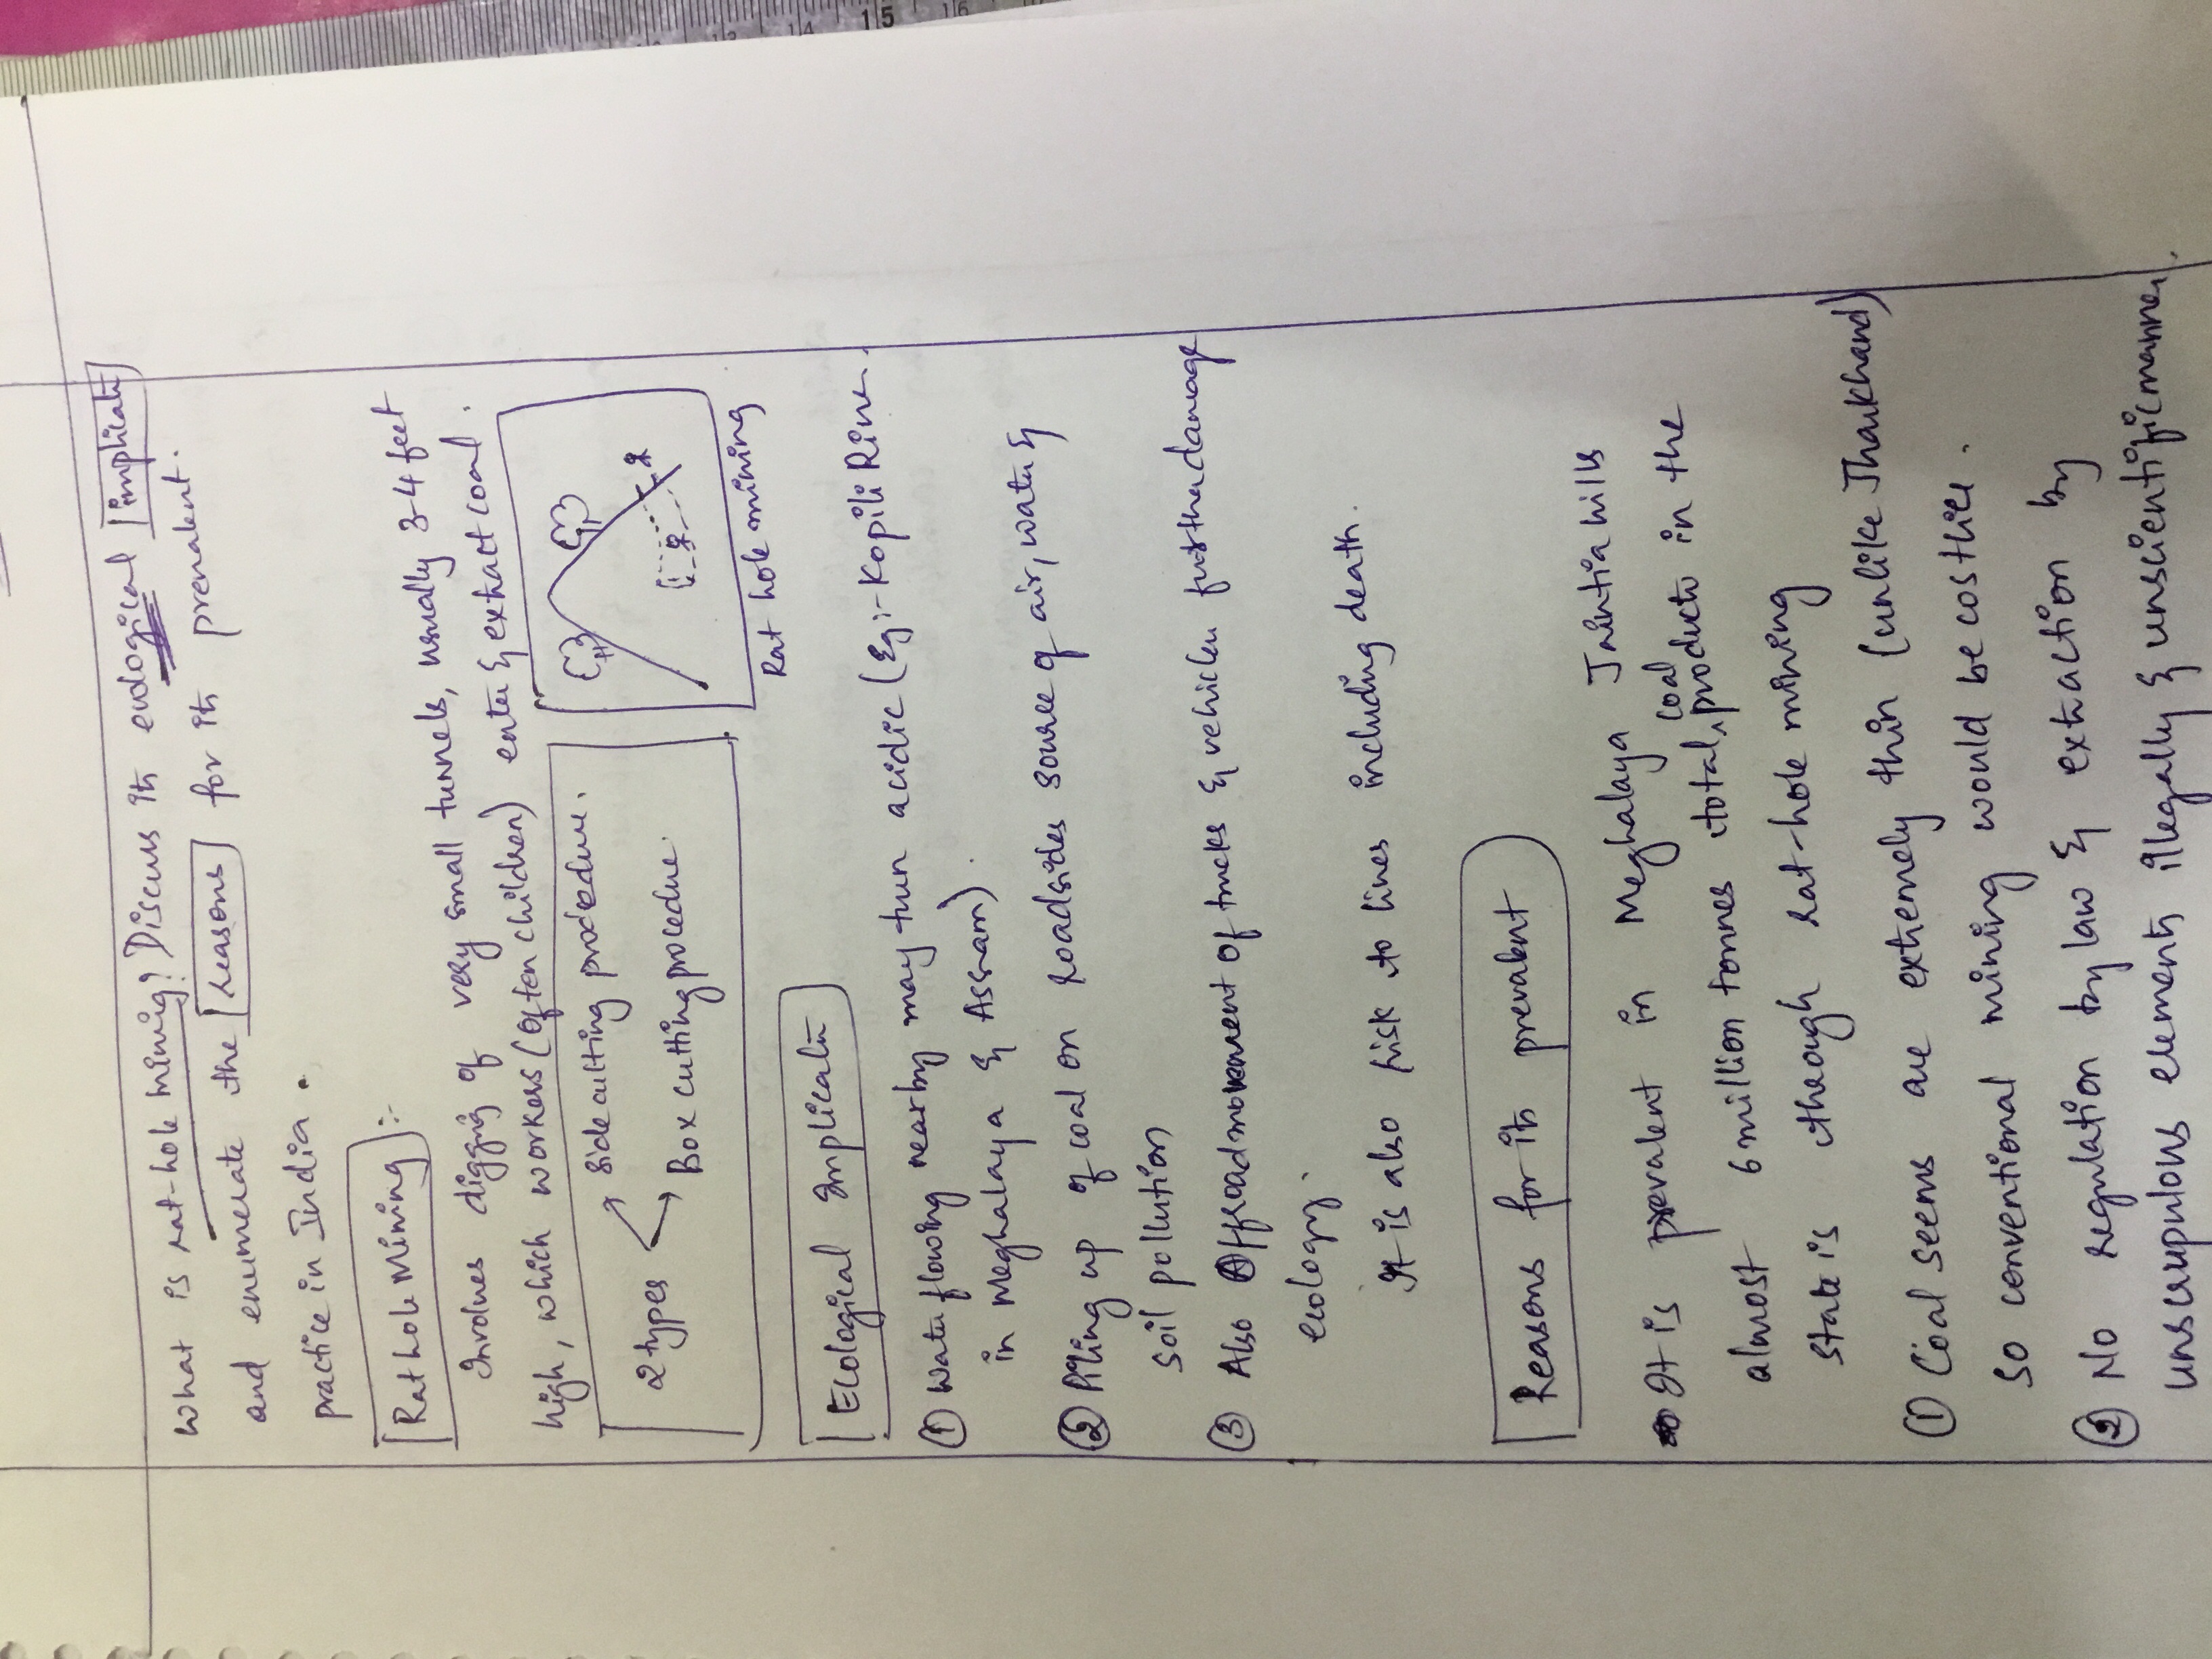 What is rat-hole mining? Discuss its ecological implicatn
and enumerate the reasons for its prevalent
practice in India.
Rat hole Mining :-
Involves digging of very small tunnels, usually 3-4 feet
high, which workers (often children) enter & extract coal.
2 types
side cutting procedure.
Box cutting procedure
Rat hole mining
Ecological Implicatn
① Water flowing nearby may turn acidic (Eg:- Kopili River
in Meghalaya & Assam).
② Piling up of coal on roadsides source of air, water &
soil pollution
③ Also Offroad movement of trucks & vehicles further damage
ecology.
It is also risk to lives including death.
Reasons for its prevalent
It is prevalent in Meghalaya Jaintia hills
almost 6 million tonnes total coal productn in the
state is through rat-hole mining
① Coal seems are extremely thin (unlike Jharkhand)
so conventional mining would be costlier.
② No regulation by law & extraction by
unscrupulous elements illegally & unscientific manner.
15
16
14
13